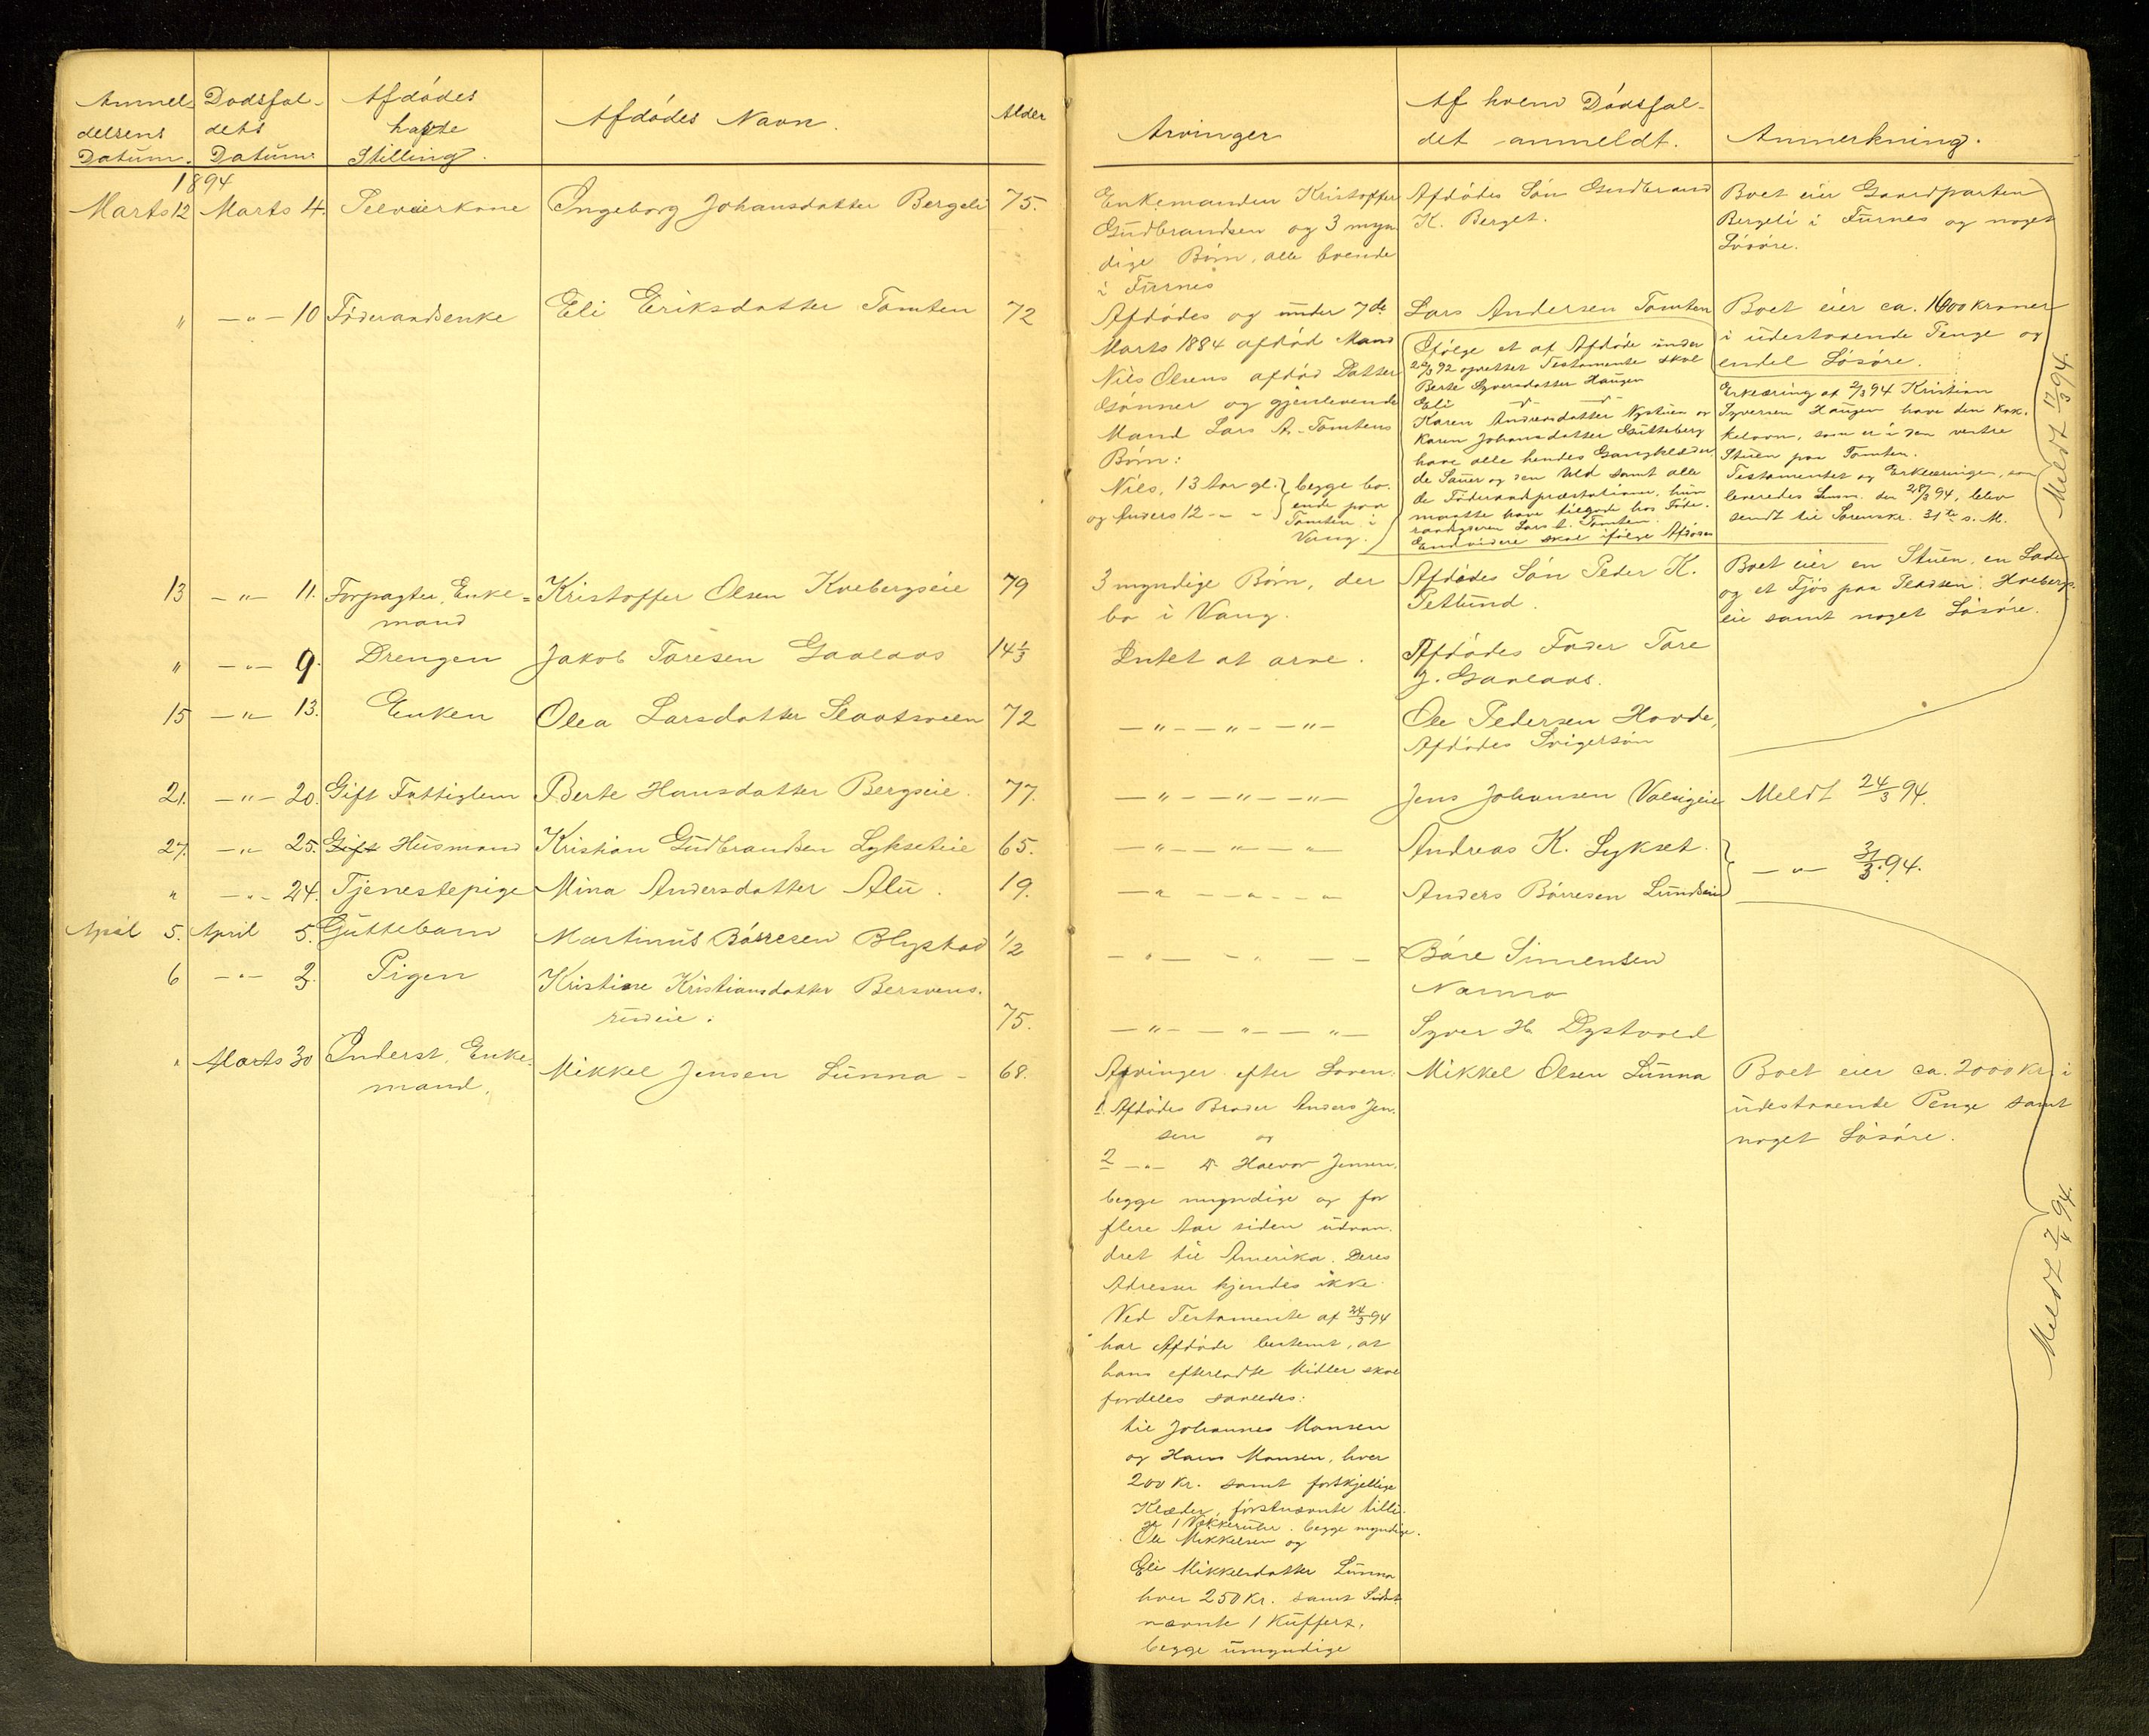 Anmel-
delsens
Datum.
Dødsfal-
dets
Datum.
Afdødes
havde
Stilling.
Afdødes Navn.
Alder
Arvinger
Af hvem Dødsfal-
det anmeldt.
Anmerkning.
1894
Marts 12 Marts 4. Selveierkone Ingeborg Johansdatter Bergeli 75.
Enkemanden Kristoffer
Gudbrandsen og 3 myn
dige Børn, alle boende
i Furnes
Afdødes Søn Gudbrand
K. Berget.
Boet eier Gaardparten
Bergeli i Furnes og noget
Løsøre.
" —"— 10 Føderaadsenke Eli Eriksdatter Tomten 72
Afdødes og under 7de
Marts 1884 afdød Mand
Nils Olsens afdød Datter
Gønner og gjenlevende
Mand Lars A. Tomtens
Børn:
Nils, 13 Aar gl.
og Anders 12 - - "
begge bo-
ende paa
Tomten i
Vang.
Lars Andersen Tomten
Ifølge et af Afdøde under
22/3 92 oprettet Testamente skal
Berte Syversdatter Haugen
Eli —"— —"—
Karen Andreasdatter Nystuen og
Karen Johansdatter Gutteberg
have alle hendes Gangklæder,
de Sauer og den Uld samt alle
de Føderaadspræstationer, hun
maatte have tilgode hos Føde-
raadsyderen Lars A. Tomten.
Endvidere skal ifølge Afdødes
Boet eier ca. 1600 kroner
i udestaaende Penge og
endel Løsøre.
Erklæring af 2/3 94 Kristian
Syversen Haugen have den Kak-
kelovn, som er i den vestre
Stuen paa Tomten.
Testamentet og Erklæringen, som
leveredes Lensm. den 28/3 94, blev
sendt til Sorenskr. 31te s. M.
13 —"— 11. Forpagter, Enke-
mand
Kristoffer Olsen Kvebergseie 79
3 myndige Børn, der
bo i Vang.
Afdødes Søn Peder K.
Petlund.
Boet eier en Stuen, en Lade
og et Fjøs paa Pladsen Kvebergs-
eie samt noget Løsøre.
" —"— 9. Drengen Jakob Toresen Gaalaas 14 1/3
Intet at arve.
Afdødes Fader Tore
J. Gaalaas.
15 —"— 13. Enken Olea Larsdatter Slaatsveen 72
—"— —"— —"—
Ole Pedersen Hovde,
Afdødes Svigersøn
Meldt 17/3 94.
21. —"— 20. Gift Fattiglem Berte Hansdatter Bergseie. 77.
—"— —"— —"— Jens Johansen Valsigeie Meldt 24/3 94.
27. —"— 25. Gift Husmand Kristian Gudbrandsen Lykseteie 65.
—"— —"— —"— Andreas K. Lykset.
" —"— 24. Tjenestepige Mina Andersdatter Alu. 19.
—"— —"— —"— Anders Børresen Lundseie
—"— 31/3 94.
April 5. April 5. Guttebarn Martinus Børresen Blystad 1/2
—"— —"— — — Børe Simensen
Narmo
6 —"— 2. Pigen Kristine Kristiansdatter Bersvens-
rudeie. 75.
—"— —"— —"— Syver H. Dystvold
" Marts 30 Inderst, Enke-
mand.
Mikkel Jensen Lunna - 68.
Arvinger efter Loven:
1. Afdødes Broder Anders Jen-
sen og
2 —"— D. Halvor Jensen,
begge myndige og for
flere Aar siden udvan-
dret til Amerika. Deres
Adresser kjendes ikke.
Ved Testamente af 24/3 94
har Afdøde bestemt, at
hans efterladte Midler skal
fordeles saaledes:
til Johannes Monsen
og Hans Monsen, hver
200 Kr. samt forskjellige
Klæder, førstnævnte tilli-
ge 1 Vækkeruhr. begge myndige.
Ole Mikkelsen og
Eli Mikkelsdatter Lunna
hver 250 Kr. samt Sidst-
nævnte 1 Kuffert,
begge umyndige
Mikkel Olsen Lunna
Boet eier ca. 2000 Kr. i
udestaaende Penge samt
noget Løsøre.
Meldt 7/4 94.